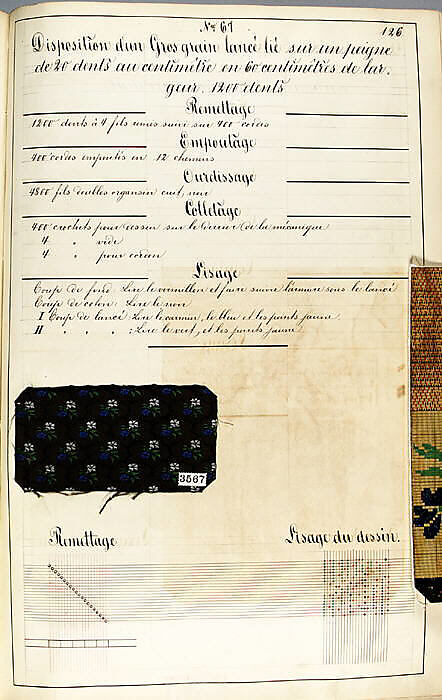 No 67
126
Disposition d'un Gros grain lancé lié sur un peigne
de 20 dents au centimètre en 60 centimètres de lar-
geur. 1200 dents
Remettage
1200 dents à 4 fils remis suivi sur 400 cordes
Empoutage
400 cordes empoutés en 12 chemins
Ourdissage
4800 fils doubles organsin cuit, noir
Colletage
400 crochets pour dessin sur le derrière de la mécanique
4 " vide
4 " pour cordon
Lisage
Coup de fond: Lire le vermillon et faire suivre l'armure sous le lancé
Coup de Lire le noir
I Coup de lancé: Lire le carmin, le bleu et les points jaune
II " " " : Lire le vert, et les points jaune
3567
Remettage
Lisage du dessin.